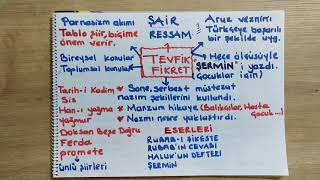 Parnasizm akımı
Tablo şiir, biçime
önem verir.
ŞAİR
RESSAM
Aruz veznini
Türkçeye başarılı
bir şekilde uyg.
Bireysel konular
Toplumsal konular
TEVFİK
FİKRET
Hece ölçüsüyle
"ŞERMİN"i yazdı.
(çocuklar için)
Tarih-i Kadim
Sis
Han-ı yağma
yağmur
Doksan Beşe Doğru
Ferda
promete
ünlü şiirleri
* Sone, serbest müstezat
nazım şekillerini kullandı.
* Manzum hikaye (Balıkçılar, Hasta
çocuk...)
* Nazmı nesre yaklaştırdı.
ESERLERİ
RUBAB-I ŞİKESTE
RUBAB'IN CEVABI
HALUK'UN DEFTERİ
ŞERMİN